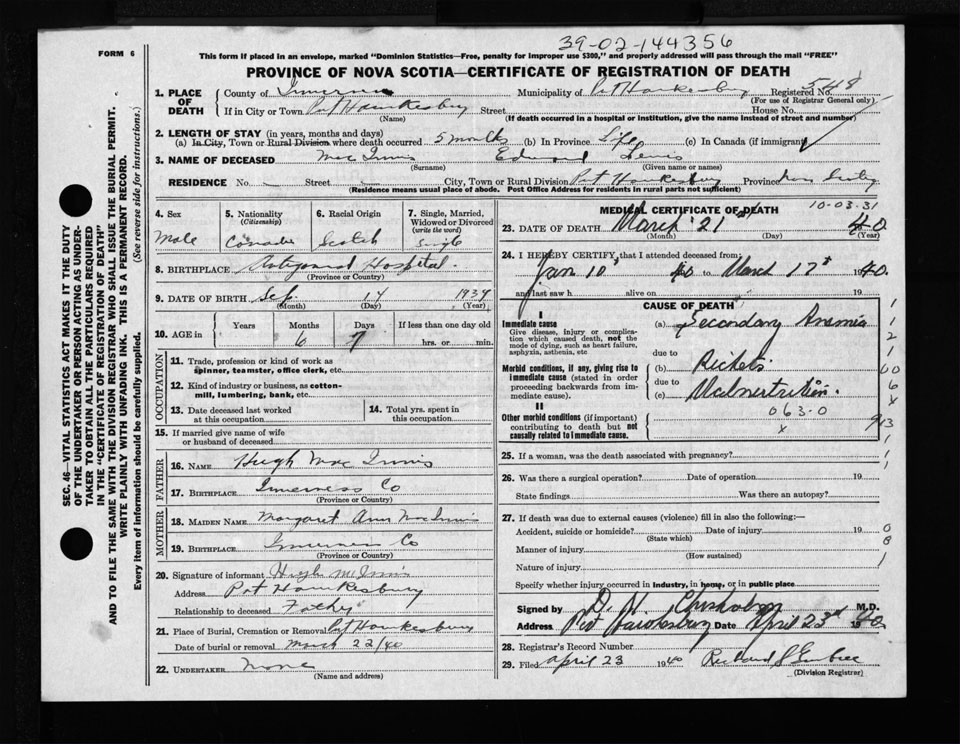 39-02-144356
FORM 6
This form if placed in an envelope, marked "Dominion Statistics—Free, penalty for improper use $300," and properly addressed will pass through the mail "FREE"
PROVINCE OF NOVA SCOTIA—CERTIFICATE OF REGISTRATION OF DEATH
1. PLACE OF DEATH County of Inverness Municipality of Pt Hawkesbury Registered No. 548
(For use of Registrar General only)
If in City or Town Pt Hawkesbury Street House No.
(Name) (If death occurred in a hospital or institution, give the name instead of street and number)
2. LENGTH OF STAY (in years, months and days)
(a) In City, Town or Rural Division where death occurred 5 months (b) In Province Life (c) In Canada (if immigrant)
3. NAME OF DECEASED Mac Innis Edward Lewis
(Surname) (Given name or names)
RESIDENCE No. Street City, Town or Rural Division Port Hawkesbury Province Nova Scotia
(Residence means usual place of abode. Post Office Address for residents in rural parts not sufficient)
4. Sex Male
5. Nationality (Citizenship) Canada
6. Racial Origin Scotch
7. Single, Married, Widowed or Divorced (write the word) Single
8. BIRTHPLACE Antigonish Hospital.
(Province or Country)
9. DATE OF BIRTH Sep. 14 1939
(Month) (Day) (Year)
10. AGE in Years Months Days If less than one day old
6 7 hrs. or min.
OCCUPATION
11. Trade, profession or kind of work as spinner, teamster, office clerk, etc.
12. Kind of industry or business, as cotton-mill, lumbering, bank, etc.
13. Date deceased last worked at this occupation
14. Total yrs. spent in this occupation
15. If married give name of wife or husband of deceased
FATHER
16. NAME Hugh Mac Innis
17. BIRTHPLACE Inverness Co
(Province or Country)
MOTHER
18. MAIDEN NAME Margaret Ann MacInnis
19. BIRTHPLACE Inverness Co
(Province or Country)
20. Signature of informant Hugh McInnis
Address Port Hawkesbury
Relationship to deceased Father
21. Place of Burial, Cremation or Removal Pt Hawkesbury
Date of burial or removal March 22/40
22. UNDERTAKER None
(Name and address)
MEDICAL CERTIFICATE OF DEATH 10-03-31
23. DATE OF DEATH March 21st 40
(Month) (Day) (Year)
24. I HEREBY CERTIFY, that I attended deceased from:
Jan 10 40 to March 17th 1940.
and last saw h alive on 19
CAUSE OF DEATH
I
Immediate cause
Give disease, injury or complication which caused death, not the mode of dying, such as heart failure, asphyxia, asthenia, etc
(a) Secondary Anemia
due to
Morbid conditions, if any, giving rise to immediate cause (stated in order proceeding backwards from immediate cause).
(b) Rickets
due to
(c) Malnutrition.
II
Other morbid conditions (if important) contributing to death but not causally related to immediate cause.
063.0
x
25. If a woman, was the death associated with pregnancy?
26. Was there a surgical operation? Date of operation 19
State findings Was there an autopsy?
27. If death was due to external causes (violence) fill in also the following:—
Accident, suicide or homicide? Date of injury 19
(State which)
Manner of injury
(How sustained)
Nature of injury
Specify whether injury occurred in industry, in home, or in public place
Signed by D. H. Chisholm M.D.
Address Port Hawkesbury Date April 23rd 40
28. Registrar's Record Number
29. Filed April 23 1940 Richard
(Division Registrar)
SEC. 46—VITAL STATISTICS ACT MAKES IT THE DUTY OF THE UNDERTAKER OR PERSON ACTING AS UNDERTAKER TO OBTAIN ALL THE PARTICULARS REQUIRED IN THE "CERTIFICATE OF REGISTRATION OF DEATH"
AND TO FILE THE SAME WITH THE DIVISION REGISTRAR WHO SHALL ISSUE THE BURIAL PERMIT.
WRITE PLAINLY WITH UNFADING INK. THIS IS A PERMANENT RECORD.
Every item of information should be carefully supplied. (See reverse side for instructions.)